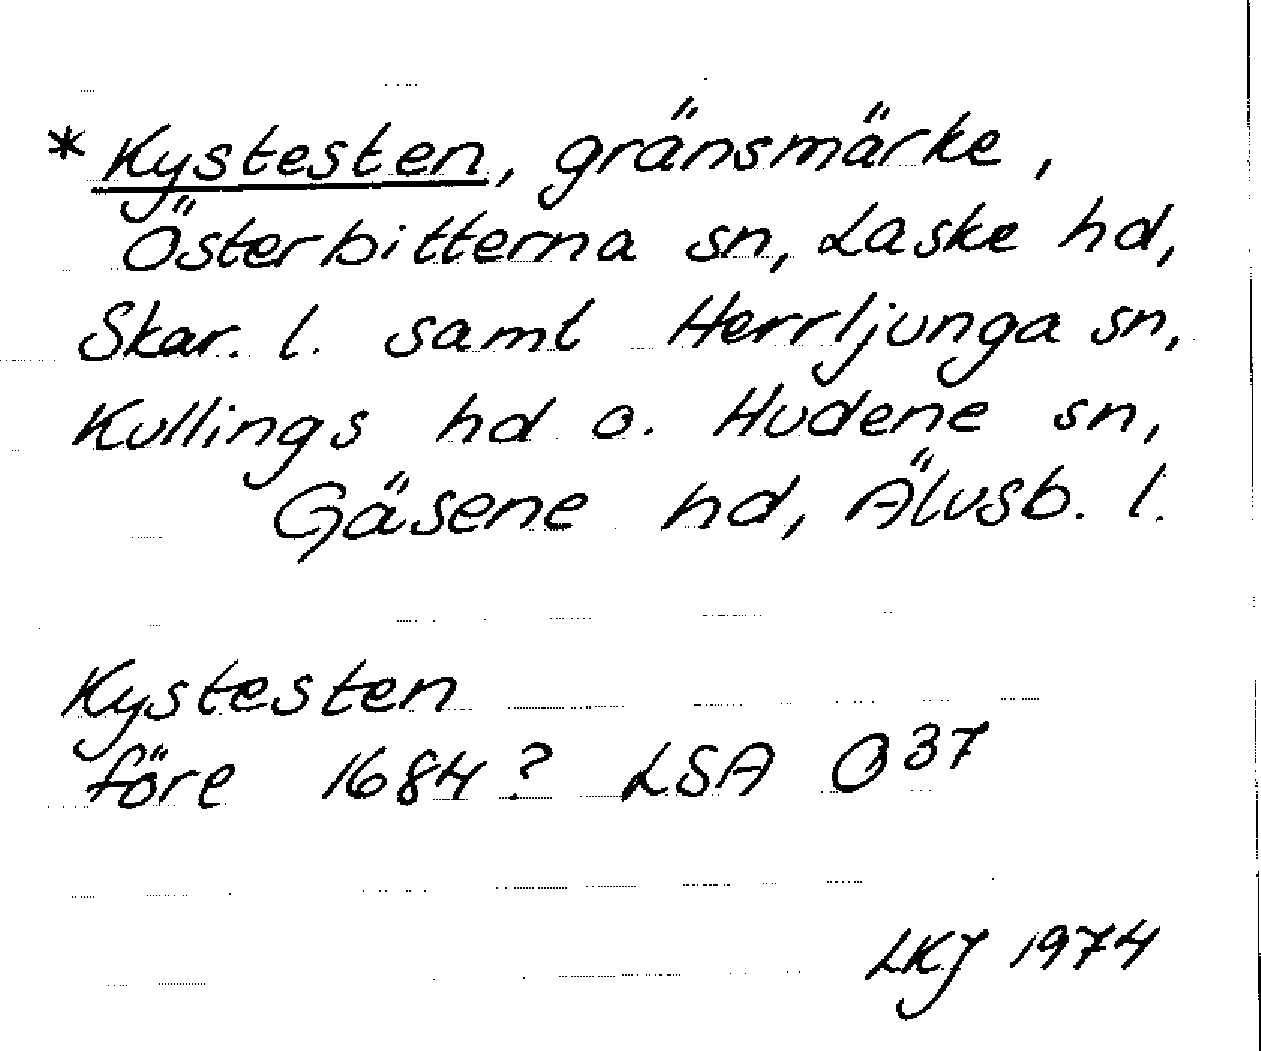 * Kystesten, gränsmärke,
Österbitterna sn, Laske hd,
Skar. l. samt Herrljunga sn,
Kullings hd o. Hudene sn,
Gäsene hd, Älvsb. l.
Kystesten
före 1684? LSA O37
LKJ 1974